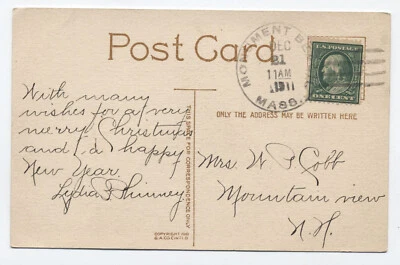 Post Card
MONUMENT BEACH
DEC
21
11 AM
1911
MASS.
U.S. POSTAGE
ONE CENT
ONLY THE ADDRESS MAY BE WRITTEN HERE
THIS SPACE FOR CORRESPONDENCE ONLY
With many
wishes for a very
merry Christmas
and a happy
New Year.
Lydia Phinney
Mrs. W P Cobb
Mountain view
N. H.
COPYRIGHT